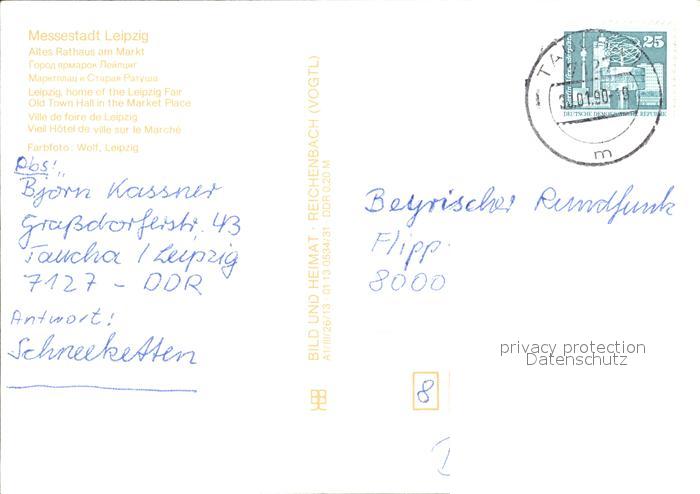 Messestadt Leipzig
Altes Rathaus am Markt
Город ярмарок Лейпциг
Маркетплац и Старая Ратуша
Leipzig, home of the Leipzig Fair
Old Town Hall in the Market Place
Ville de foire de Leipzig
Vieil Hôtel de ville sur le Marché
Farbfoto: Wolf, Leipzig
Abs!
Björn Kassner
Graßdorferstr. 43
Taucha / Leipzig
7127 - DDR
Antwort!
Schneeketten
BILD UND HEIMAT · REICHENBACH (VOGTL)
A1/III/26/13 · 01 13 0534/31 DDR 0,20 M
25
DEUTSCHE DEMOKRATISCHE REPUBLIK
7127
30.01.90-18
m
Beyrischer Rundfunk
Flipp
8000
privacy protection
Datenschutz
8